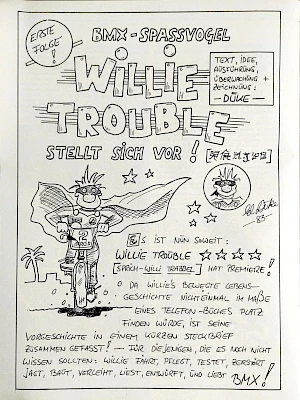 ERSTE
FOLGE!
BMX-SPASSVOGEL
WILLIE
TROUBLE
STELLT SICH VOR!
TEXT, IDEE,
AUSFÜHRUNG,
ÜBERWACHUNG +
ZEICHNUNG:
- DÜKE -
85
ES IST NUN SOWEIT:
WILLIE TROUBLE
[SPRICH - WILLI TRABBEL] HAT PREMIERE!
DA WILLIE'S BEWEGTE LEBENS-
GESCHICHTE NICHT EINMAL IM MAßE
EINES TELEFON-BUCHES PLATZ
FINDEN WÜRDE, IST SEINE
VORGESCHICHTE IN EINEM KURZEN STECKBRIEF
ZUSAMMEN GEFAßT! - FÜR DIEJENIGEN, DIE ES NOCH NICHT
WISSEN SOLLTEN: WILLIE FÄHRT, PFLEGT, TESTET, ZERSTÖRT
JAGT, BAUT, VERLEIHT, LIEST, ENTWIRFT, UND LIEBT BMX!